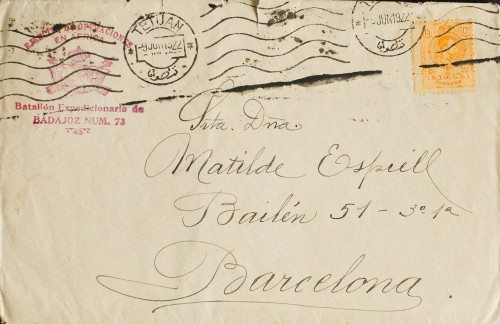 EJERCITO DE OPERACIONES
EN AFRICA
Batallón Expedicionario de
BADAJOZ NUM. 73
TETUAN
JUN 1922
JUN 1922
Srta. Dña.
Matilde Espiell
Bailén 51 - 3º 1ª
Barcelona.